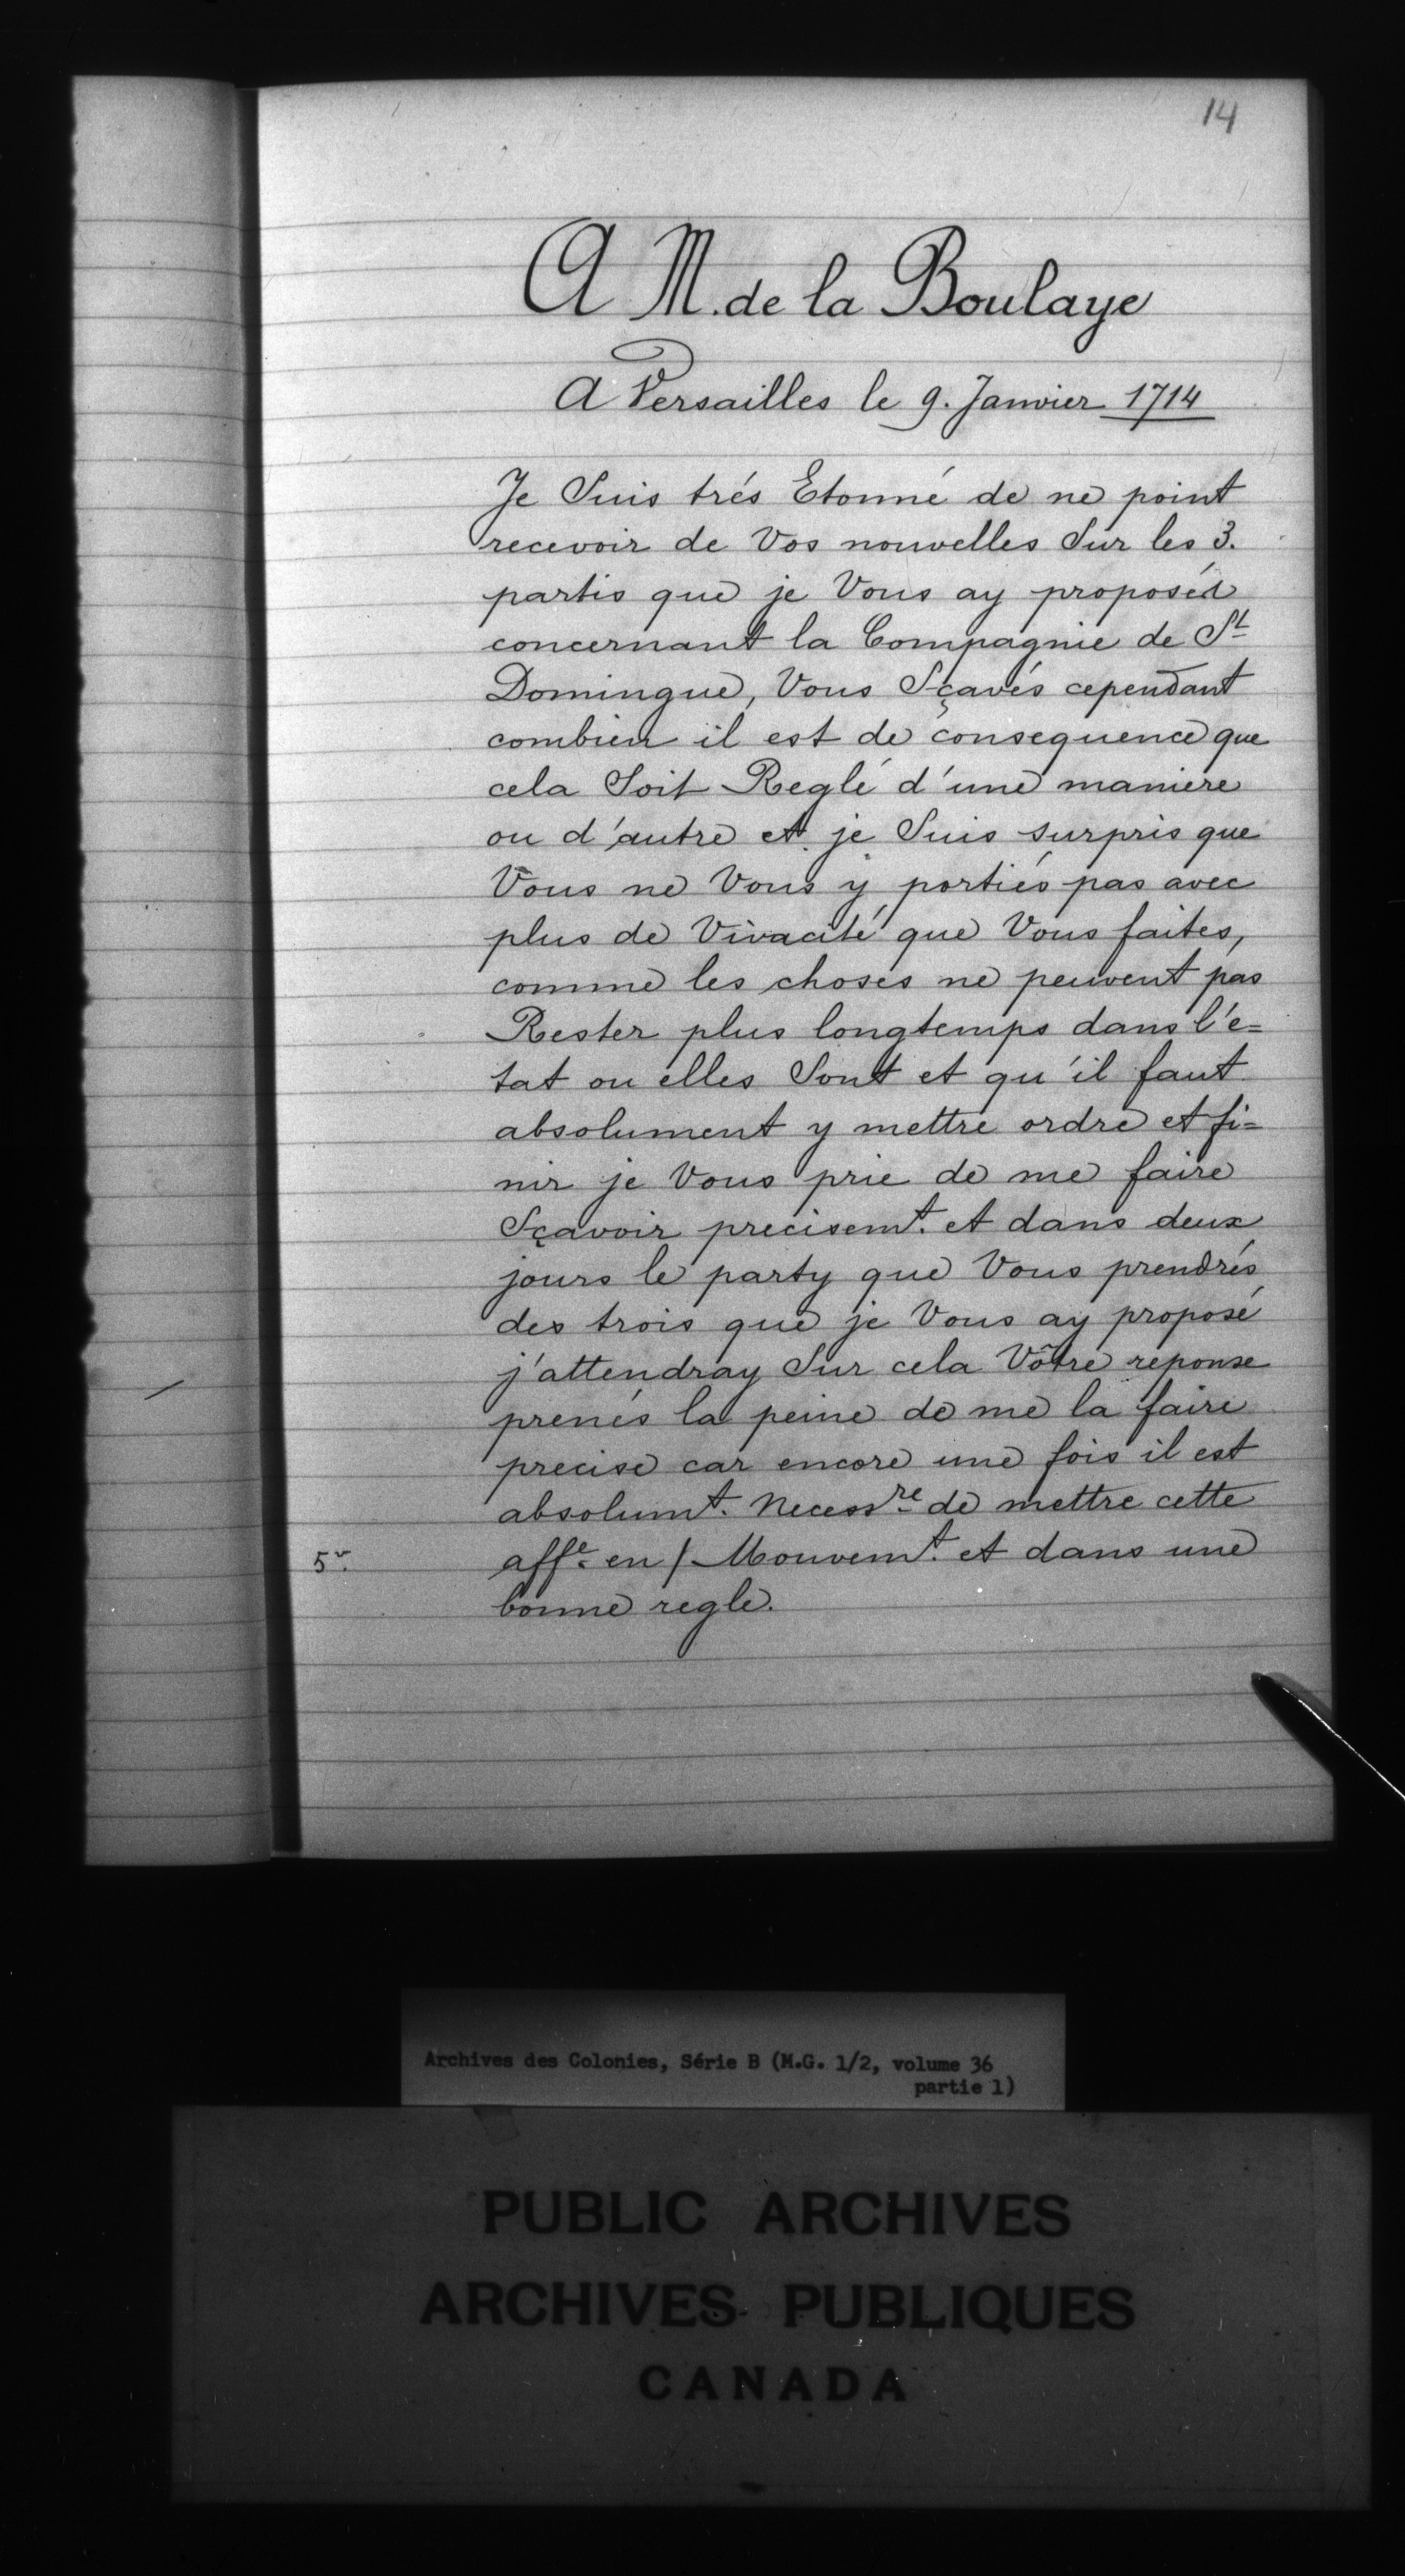 14
A M. de la Boulaye
A Versailles le 9. Janvier 1714
Je Suis trés Etonné de ne point
recevoir de Vos nouvelles Sur les 3.
partis que je Vous ay proposés
concernant la Compagnie de St
Domingue, Vous Sçavés cependant
combien il est de consequence que
cela Soit Reglé d'une maniere
ou d'autre et je Suis surpris que
Vous ne Vous y portiés pas avec
plus de Vivacité que Vous faites,
comme les choses ne peuvent pas
Rester plus longtemps dans l'e=
tat ou elles Sont et qu'il faut
absolument y mettre ordre et fi=
nir je Vous prie de me faire
Sçavoir precisemt. et dans deux
jours le party que Vous prendrés
des trois que je Vous ay proposé
j'attendray Sur cela Vôtre reponse
prenés la peine de me la faire
precise car encore une fois il est
absolumt. Necessre de mettre cette
5v. affe. en / Mouvemt. et dans une
bonne regle.
Archives des Colonies, Série B (M.G. 1/2, volume 36
partie 1)
PUBLIC ARCHIVES
ARCHIVES PUBLIQUES
CANADA